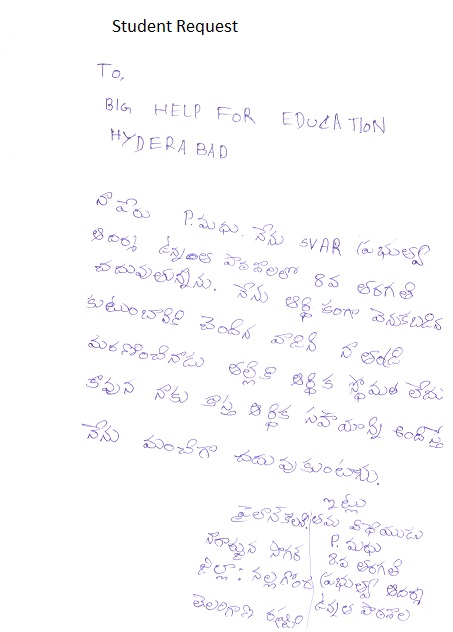 Student Request
To,
BIG HELP FOR EDUCATION
HYDERABAD
నా పేరు P. మధు. నేను SVAR ప్రభుత్వ
ఆదర్శ ఉన్నంత పాఠశాలలో 8వ తరగతి
చదువుతున్నాను. నేను ఆర్థికంగా వెనుకబడిన
కుటుంబానికి చెందిన వాడిని నా తండ్రి
మరణించినాడు తల్లికి ఆర్థిక స్థోమత లేదు
కావున నాకు కాస్త ఆర్థిక సహాయాన్ని అందిస్తే
నేను మంచిగా చదువుకుంటాను.
ఇట్లు
పైలాన్ కాలని తమ విధేయుడు
నాగార్జున సాగర్ P. మధు
8వ తరగతి
జిల్లా: నల్లగొండ ప్రభుత్వ ఆదర్శ
తెలంగాణ రాష్ట్రం ఉన్నత పాఠశాల